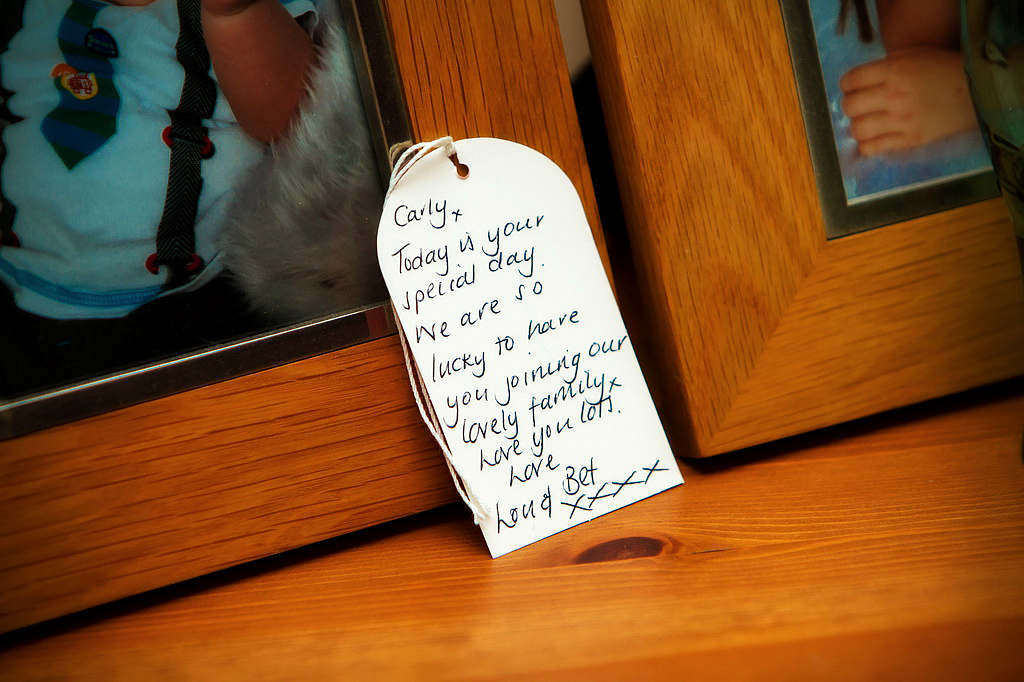 Carly x
Today is your
special day.
We are so
lucky to have
you joining our
lovely family x
Love you lots.
Love
Lou & Bet
xxxx